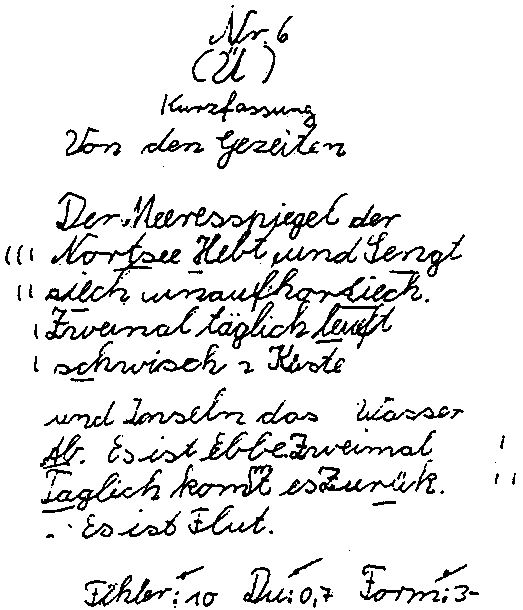 Nr. 6
(Ü)
Kurzfassung
Von den Gezeiten
Der Meeresspiegel der
Nortsee Hebt und Sengt
siech unaufhorliech.
Zweimal täglich leuft
schwisch Küste
und Inseln das Wasser
Ab. Es ist Ebbe. Zweimal
Taglich komt es Zurük.
Es ist Flut.
Fehler: 10 Du: 0,7 Form: 3-